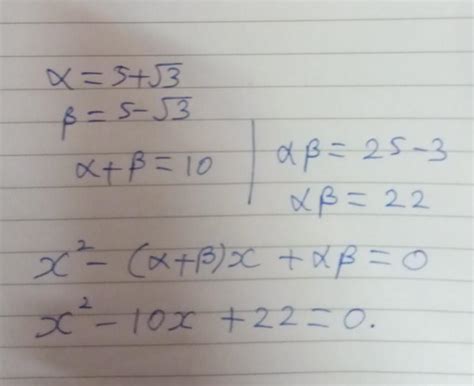 α = 5+√3
β = 5-√3
α+β = 10
αβ = 25-3
αβ = 22
x² - (α+β)x + αβ = 0
x² - 10x + 22 = 0.